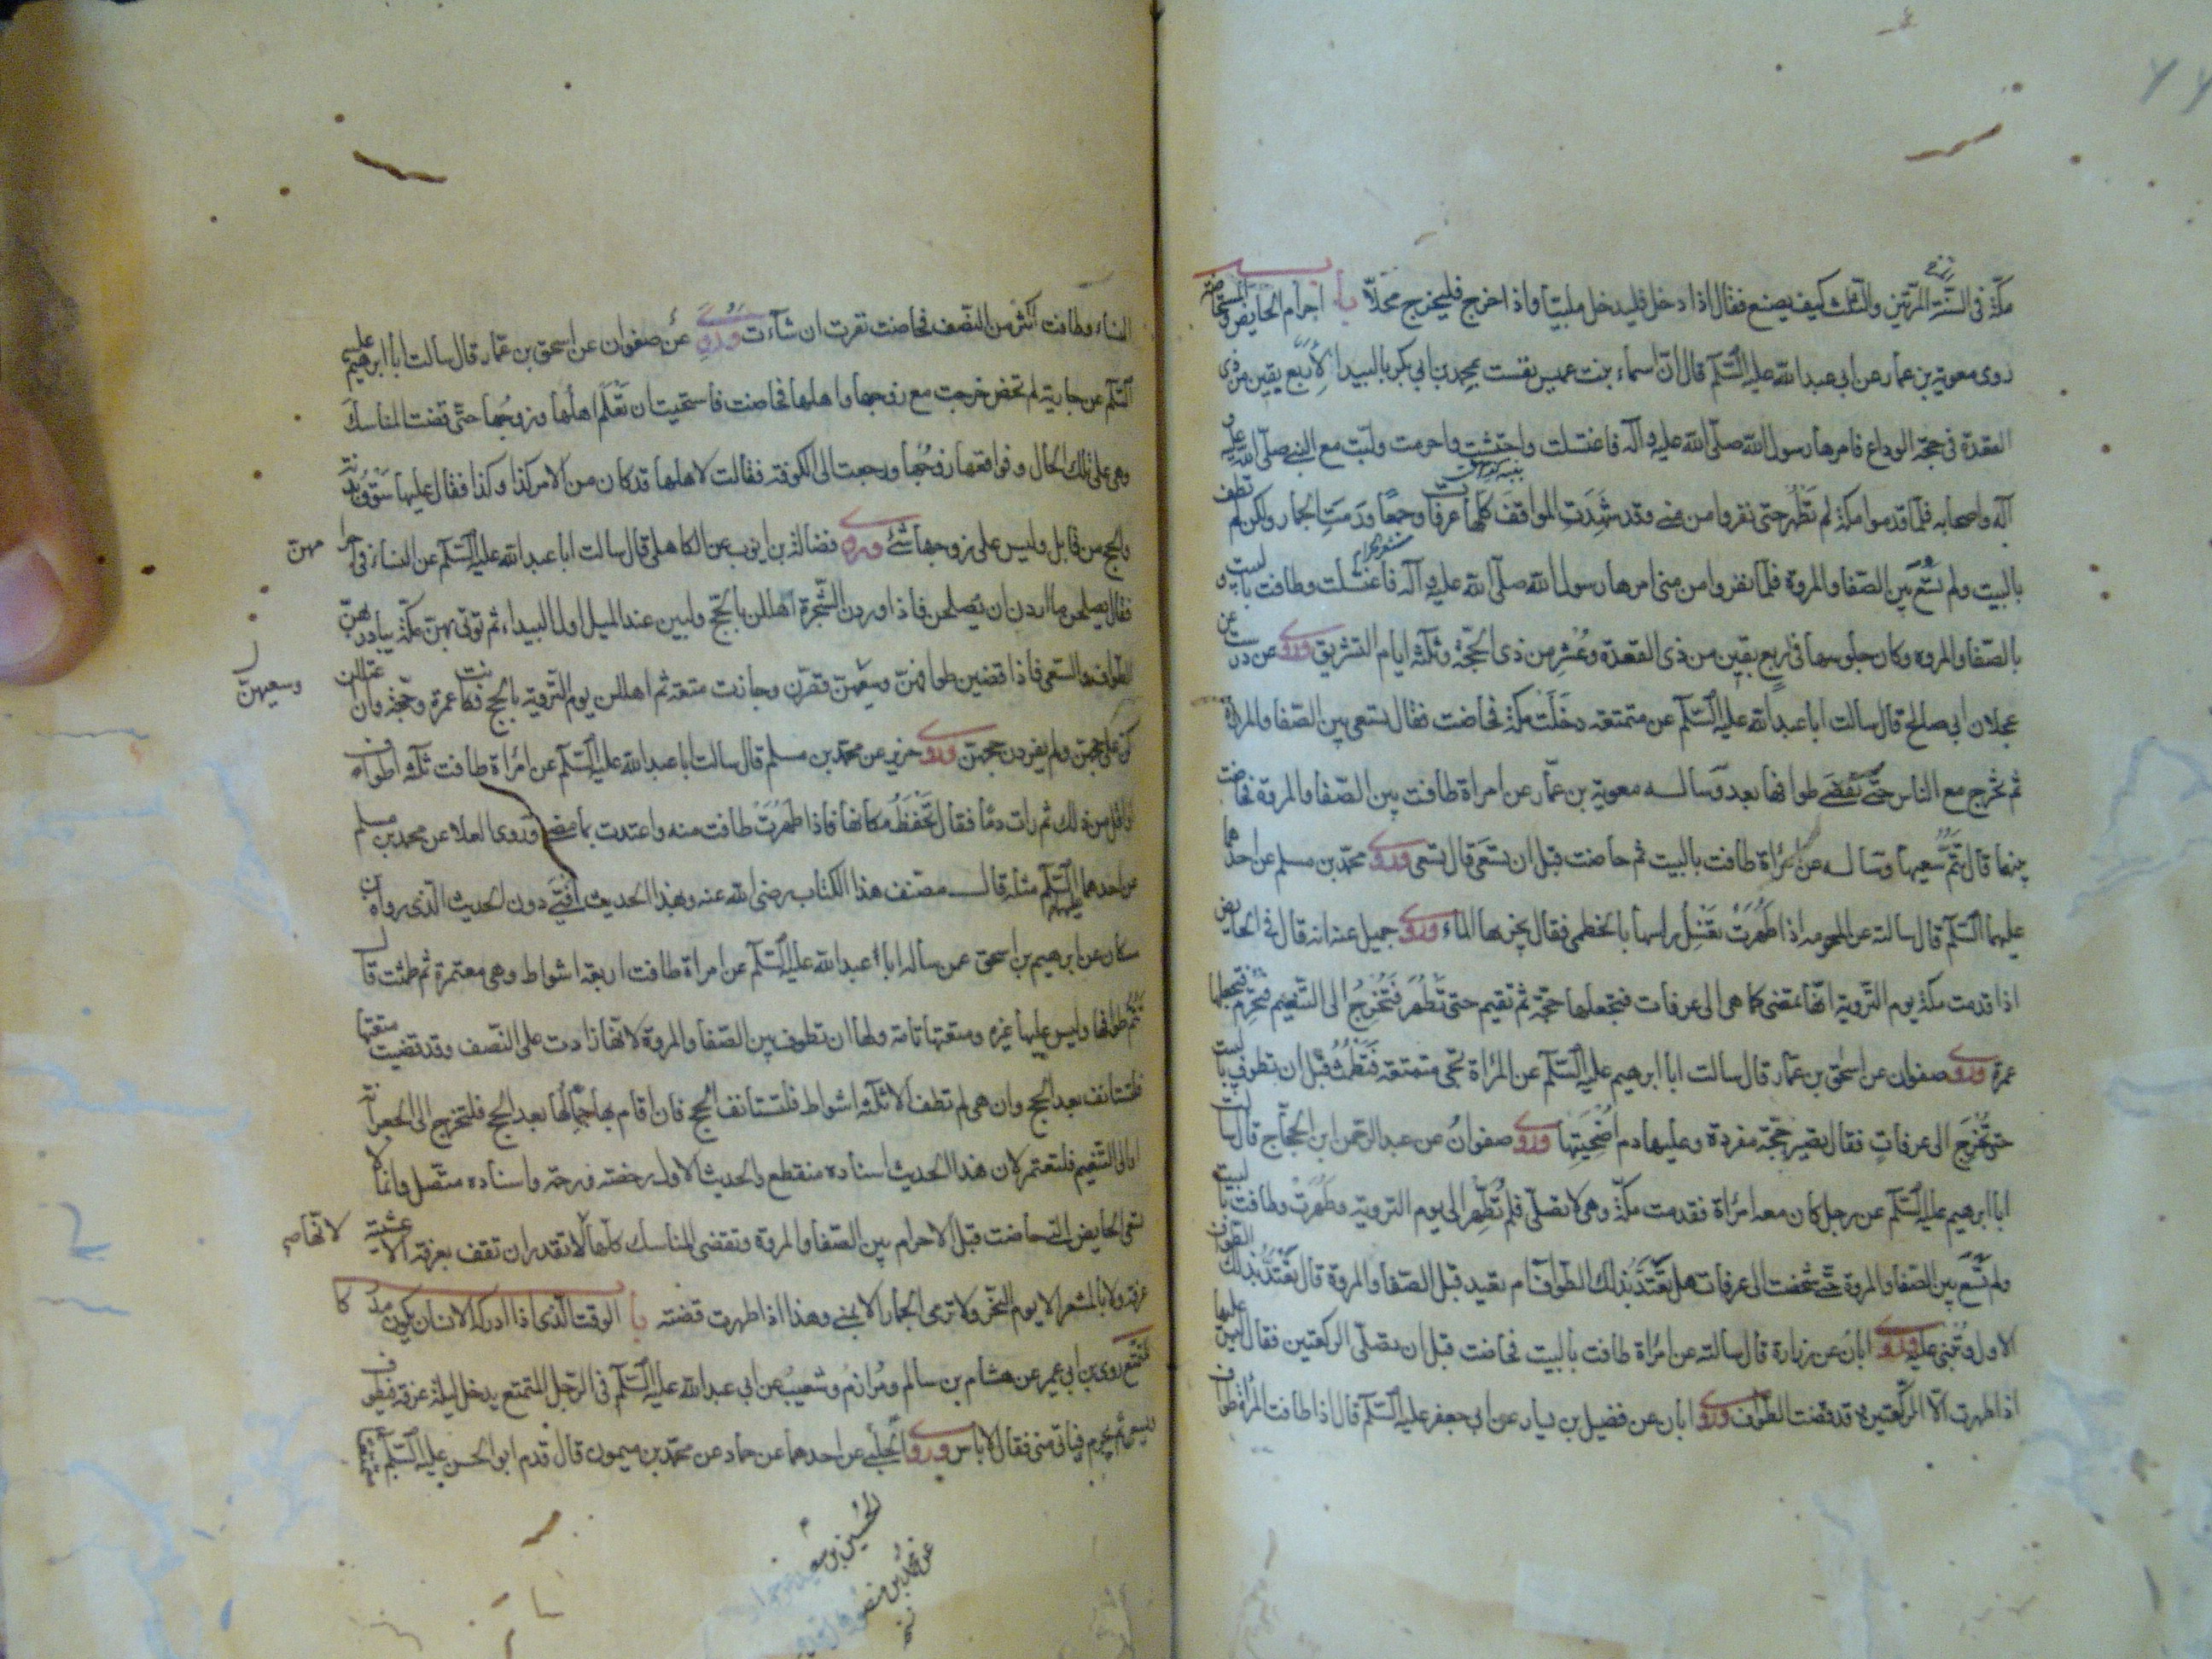 مكة فى السنة المرتين والثلث كيف يصنع فقال اذا دخل فليدخل ملبيا واذا خرج فليخرج محلا باب احرام الحايض والمستحاضة
روى معوية بن عمار عن ابى عبد الله عليه السلم قال ان اسماء بنت عميس نفست بمحمد بن ابى بكر بالبيداء لاربع بقين من ذى
القعدة فى حجة الوداع فامرها رسول الله صلى الله عليه و آله فاغتسلت واحتشت واحرمت ولبت مع النبى صلى الله عليه و
آله واصحابه فلما قدموا مكة لم تطهر حتى نفروا من منى وقد شهدت المواقف كلها عرفات وجمعا ورمت الجمار ولكن لم تطف
بالبيت ولم تسع بين الصفا والمروة فلما نفروا من منى امرها رسول الله صلى الله عليه و آله فاغتسلت وطافت بالبيت و
بالصفا والمروه وكان جلوسها فى اربع بقين من ذى القعدة وعشر من ذى الحجة وثلثه ايام التشريق وروى عن درست عن
عجلان ابى صالح قال سالت ابا عبد الله عليه السلم عن متمتعه دخلت مكة فحاضت فقال تسعى بين الصفا والمروة
ثم تخرج مع الناس حتى تقضى طوافها بعد وساله معوية بن عمار عن امراة طافت بين الصفا والمروة فحاضت
بينهما قال تتم سعيها وساله عن امراة طافت بالبيت ثم حاضت قبل ان تسعى قال تسعى وروى محمد بن مسلم عن احدهما
عليهما السلم قال سالته عن المحرمه اذا طهرت تغسل راسها بالخطمى فقال يجزيها الماء وروى جميل عنه انه قال فى الحايض
اذا قدمت مكة يوم التروية انها تمضى كما هى الى عرفات فتجعلها حجة ثم تقيم حتى تطهر فتخرج الى التنعيم فتحرم فتجعلها
عمرة وروى صفوان عن اسحق بن عمار قال سالت ابا ابرهيم عليه السلم عن المراة تجى متمتعه فتطمث قبل ان تطوف بالبيت
حتى تخرج الى عرفات فقال تصير حجة مفردة وعليها دم اضحيتها وروى صفوان عن عبد الرحمن ابن الحجاج قال سالت
ابا ابرهيم عليه السلم عن رجل كان معه امراة فقدمت مكة وهى لا تصلى فلم تطهر الى يوم التروية وطهرت وطافت بالبيت
ولم تسع بين الصفا والمروة حتى شخصت الى عرفات هل تعتد بذلك الطواف ام تعيد قبل الصفا والمروة قال تعتد بذلك الطواف
الاول وتبنى عليه وروى ابان عن زرارة قال سالته عن امراة طافت بالبيت فحاضت قبل ان تصلى الركعتين فقال ليس عليها
اذا طهرت الا الركعتين و قد قضت الطواف وروى ابان عن فضيل بن يسار عن ابى جعفر عليه السلم قال اذا طافت المراة طواف
النساء وطافت اكثر من النصف فحاضت نفرت ان شاءت وروى عن صفوان عن اسحق بن عمار قال سالت ابا ابرهيم عليه
السلم عن جارية لم تحض خرجت مع زوجها واهلها فحاضت فاستحيت ان تعلم اهلها وزوجها حتى قضت المناسك
وهى على تلك الحال و فواقعها زوجها ورجعت الى الكوفه فقالت لاهلها قد كان من الامر كذا وكذا فقال عليها سوق بدنة
والحج من قابل وليس على زوجها شئ وروى فضالة بن ايوب عن الكاهلى قال سالت ابا عبد الله عليه السلم عن النساء فى احرامهن
فقال يصلحن ما اردن ان يصلحن فاذا وردن الشجرة اهللن بالحج ولبين عند الميل اول البيداء ثم توتى بهن مكة يبادر بهن
الطواف والسعى فاذا قضين طوافهن وسعيهن قصرن وجازت متعه ثم اهللن يوم التروية بالحج فكانت عمرة وحجة وان اعتللن
وسعيهن
كن على حجهن ولم يفردن حجهن وروى حريز عن محمد بن مسلم قال سالت ابا عبد الله عليه السلم عن امراة طافت ثلثه اطواف
او اقل من ذلك ثم رات دما فقال تحفظ مكانها فاذا طهرت طافت منه واعتدت بما مضى وروى العلا عن محمد بن مسلم
عن احدهما عليهما السلم مثله قال مصنف هذا الكتاب رضى الله عنه وبهذا الحديث افتى دون الحديث الذى رواه ابن
سكان عن ابرهيم بن اسحق عمن سال ابا عبد الله عليه السلم عن امراة طافت اربعة اشواط وهى معتمرة ثم طمثت قال
تتم طوافها وليس عليها غيره ومتعتها تامة ولها ان تطوف بين الصفا والمروة لانها زادت على النصف وقد قضيت متعتها
فلتستانف بعد الحج وان هى لم تطف الا ثلثه اشواط فلتستانف الحج فان اقام بها جمالها بعد الحج فلتخرج الى الجعرانه
او الى التنعيم فلتعتمر لان هذا الحديث اسناده منقطع والحديث الاول رخصة ورحمة واسناده متصل وانما لا
تسعى الحايض التى حاضت قبل الاحرام بين الصفا والمروة وتقضى المناسك كلها لانها لا تقدر ان تقف بعرفة الا عشية
عرفه ولا بالمشعر الا يوم النحر ولا ترمى الجمار الا بمنى وهذا اذا طهرت قضته باب الوقت الذى اذا ادركه الانسان يكون مدركا
للتمتع روى ابن ابى عمير عن هشام بن سالم ومرازم وشعيب عن ابى عبد الله عليه السلم فى الرجل المتمتع يدخل ليلة عرفة فيطوف
ويسعى ثم يحرم فياتى منى فقال لا باس وروى الحلبى عن احدهما عن حماد عن محمد بن ميمون قال قدم ابو الحسن عليه السلم متمتعا
الحسين بن سعيد
عن محمد بن